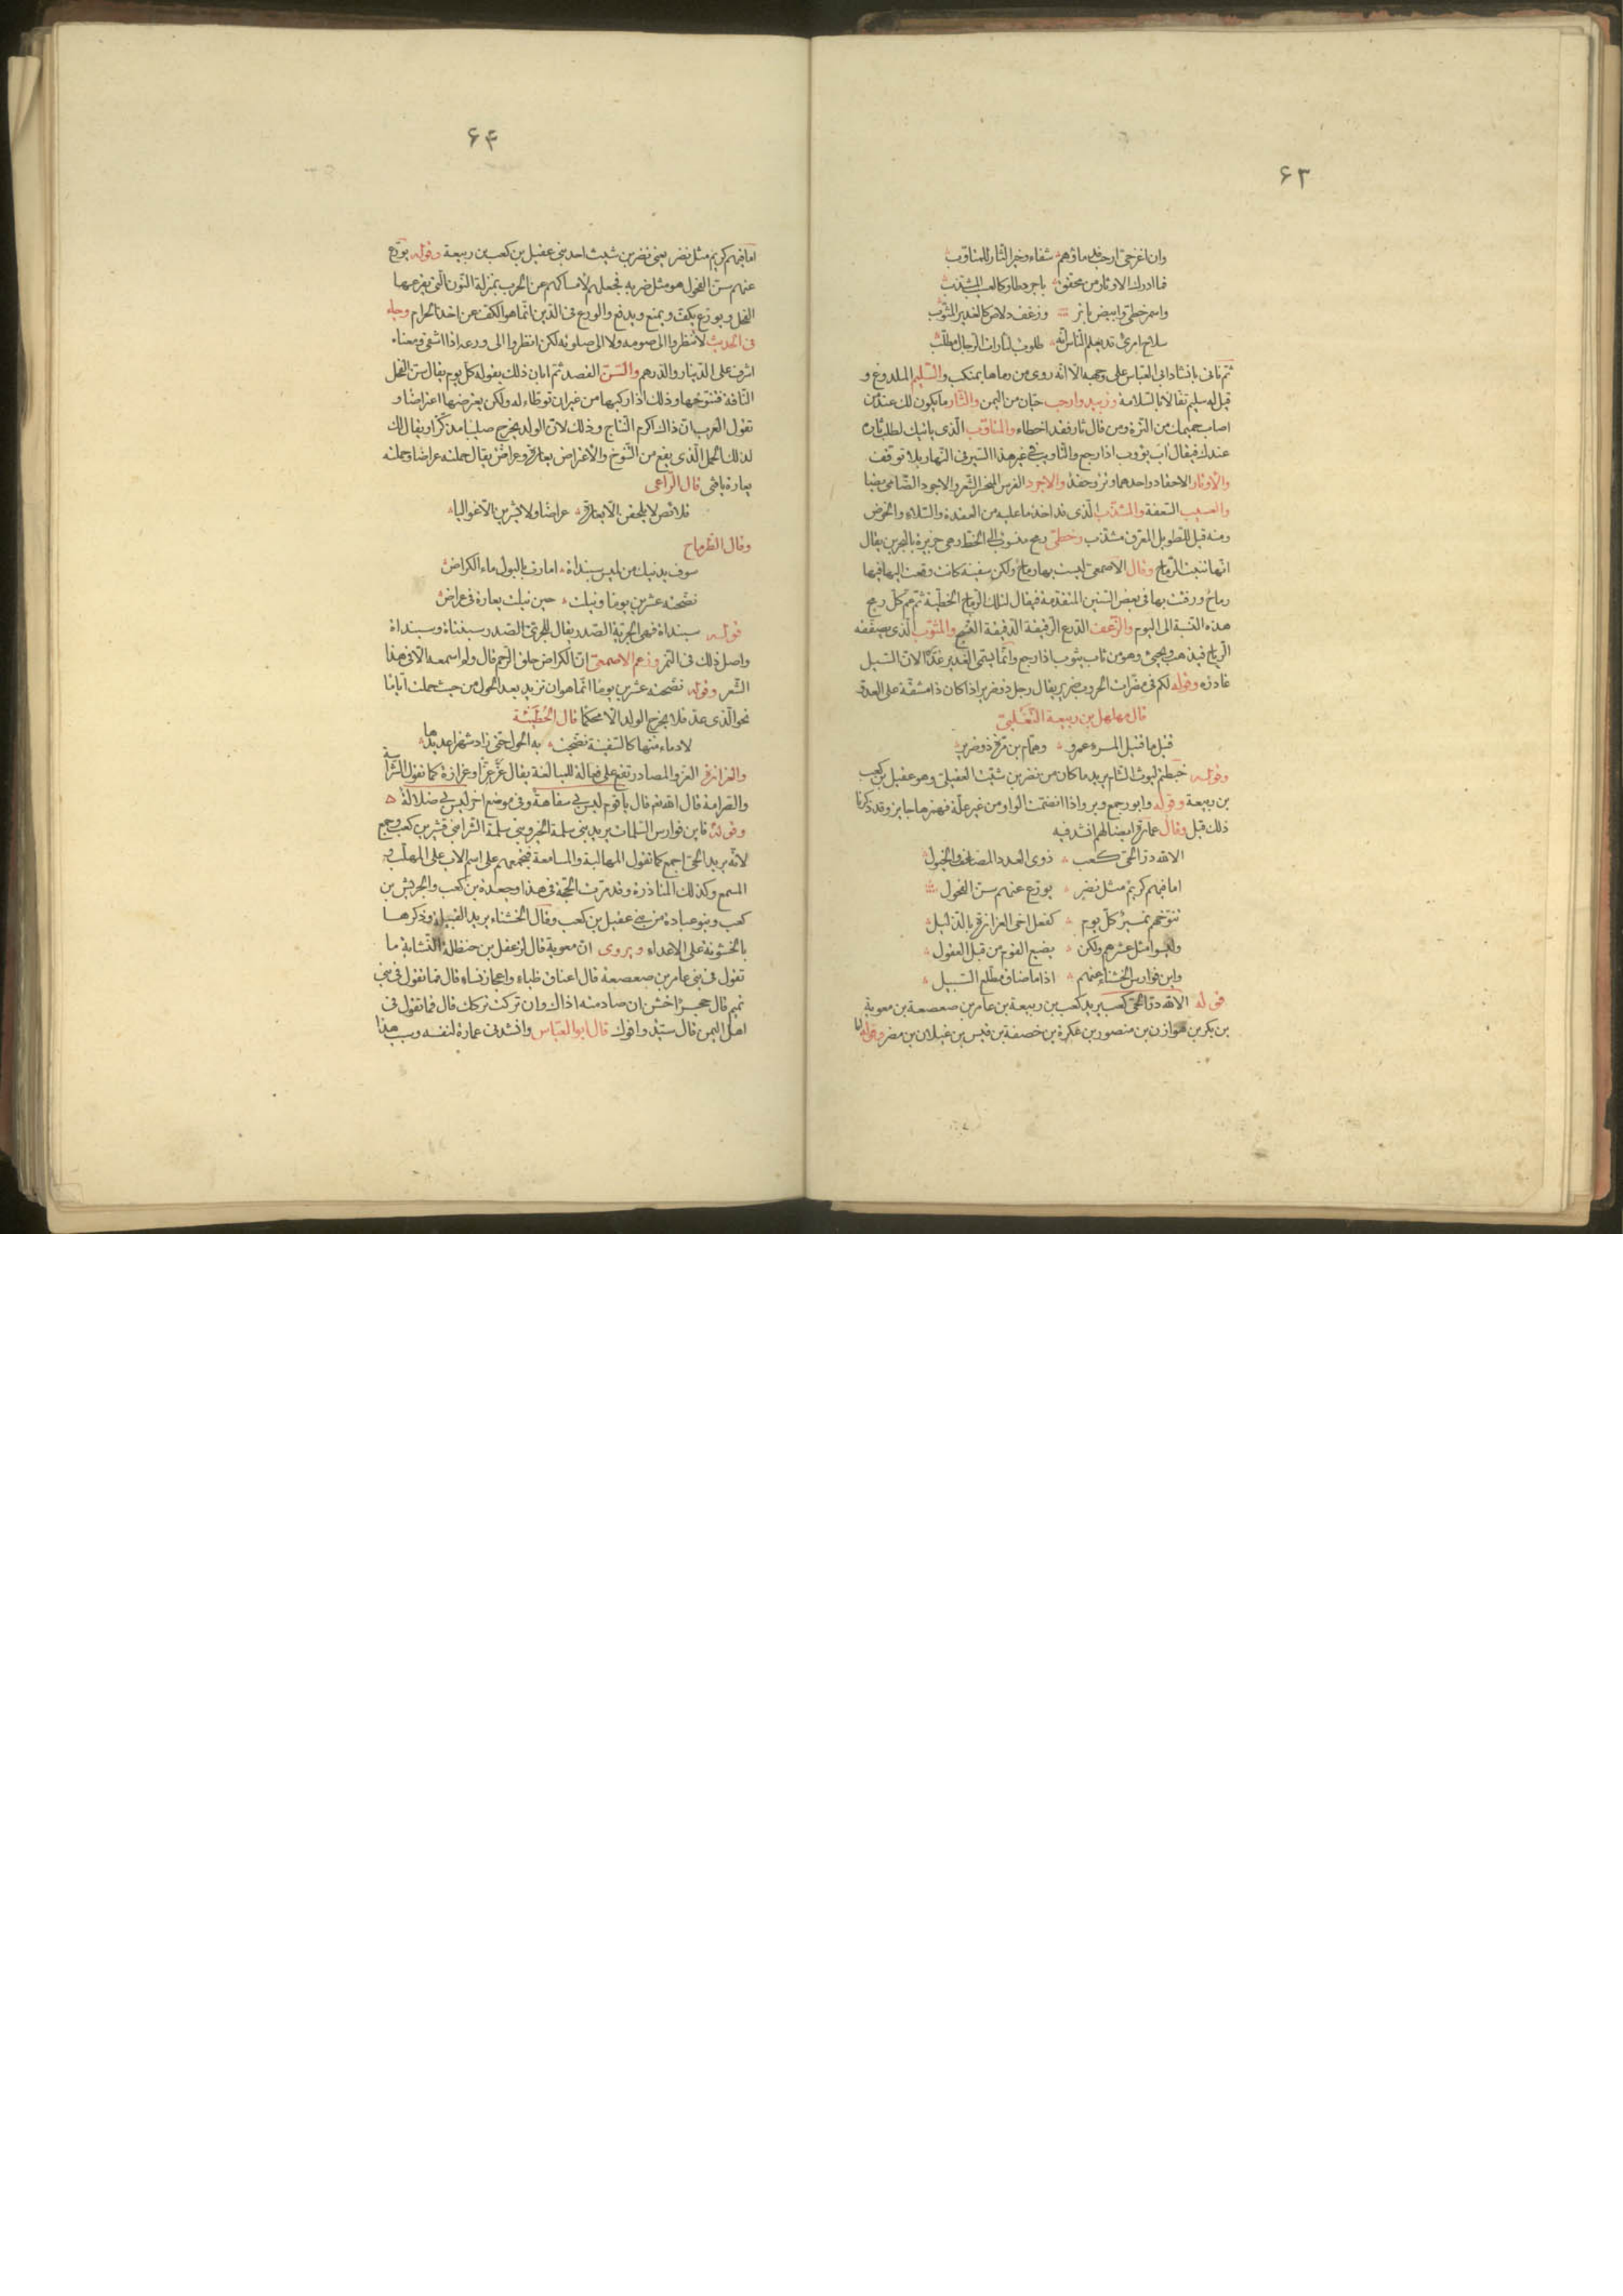 ۶۳
وان اغزحیّ ارحب ماؤهم شفاء وخیر الثار للمتاوّب
فما ادرك الاوتار من محقق باجرد طاو كالعسیب المشذّب
واسمر خطیّ وابیض باتر وزغف دلاص كالغدیر المثوّب
سلاح امرئ قد یعلم الناس انّه طلوب لثارات الرجال مطلّب
ثم نأتی بانشاد ابی العباس علی وجهه الا انّه روی من رماها بمنكب والسّلیم الملدوغ و
قیل له سلیم تفاؤلا بالسلامة وزبید وارحب حیّان من الیمن والثار ما یكون لك عند من
اصاب حمیمك من الترة ومن قال ثار فقد اخطاء والمتاوّب الذی یاتیك لطلب ثاره
عندك فیقال آب یؤوب اذا رجع والتاویب فی غیر هذا السیر فی النهار بلا توقف
والأوتار الاحقاد واحدها وتر وحقد والاجرد الفرس المنجرد الشعر والاجرد الضامر ایضا
والعسیب السعفة والمشذّب الذی قد اخذ ما علیه من العقدة والسلاء والخوص
ومنه قیل للطویل المعرق مشذّب وخطیّ رمح منسوب الی الخط وهی جزیرة بالبحرین یقال
انها تنبت الرماح وقال الاصمعیّ لیست بها رماح ولكن سفینة كانت وقعت الیها فیها
رماح وارفئت بها فی بعض السنین المتقدمة فقیل لتلك الرماح الخطیة ثم عم كلّ رمح
هذه النسبة الی الیوم والزغف الدرع الرقیقة الدقیقة النسج والمثوّب الذی یصفقه
الریاح فیذهب ویجئ وهو من ثاب یثوب اذا رجع وانّما یسمی الغدیر غدیرا لان السیل
غادره وقوله لكم فی مضرات الحروب ضریر یقال رجل ذو ضریر اذا كان ذا مشقة علی العدوّ
قال مهلهل بن ربیعة التغلبیّ
قتیل ما قتیل المرء عمرو وهمّام بن مرّة ذو ضریر
وقوله خبطتم لیوث الشام یرید ما كان من نصر بن شبث العقیلیّ وهو عقیل بن كعب
بن ربیعة وقوله وابو رجمع ویر واذا انضمت الواو من غیر علّة فهمزها جایز وقد ذكرنا
ذلك قبل وقال عمارة ایضا لهم انشد فیه
الا لله درّ الحیّ كعب ذوی العدد المضاعف والخیول
اما فیهم كریم مثل نصر یورّع عنهم سنن الفحول
تنوّخهم نمیر كلّ یوم كفعل اخی العزازة بالذلیل
ولیسوا مثل عشرهم ولكن یضیع القوم من قبل العقول
واین فوارس الخشناء عنهم اذا ما ضاق مطلع السبیل
قوله الا لله درّ الحیّ كعب یرید كعب بن ربیعة بن عامر بن صعصعة بن معویة
بن بكر بن هوازن بن منصور بن عكرمة بن خصفة بن قیس بن عیلان بن مضر وقوله
۶۴
اما فیهم كریم مثل نصر یعنی نصر بن شبث احد بنی عقیل بن كعب بن ربیعة وقوله یورّع
عنهم سنن الفحول هو مثل ضربه فجعلهم لامساكهم عن الحرب بمنزلة النوق التی یقرعها
الفحل ویورّع یكفّ ویمنع ویدفع والورع فی الدین انّما هو الكفّ عن اخذ الحرام وجاء
فی الحدیث لا تنظروا الی صومه ولا الی صلوته لكن انظروا الی ورعه اذا اشفی ومعناه
اشرف علی الدینار والدرهم والسّنن القصد ثم ابان ذلك بقوله كلّ یوم یقال سنّ الفحل
الناقة فتنوّخها وذلك اذا ركبها من غیر ان توطاء له ولكن یعترضها اعتراضا و
تقول العرب انّ ذلك اكرم النتاج وذلك لان الولد یخرج صلیبا مذكّرا ویقال لك
لذلك الحمل الذی یقع من التنوّخ والاعتراض یعارة وعراض یقال حملته عراضا وحملته
یعارة یافتی قال الراعی
قلائص لا یلقحن الا یعارة عراضا ولا یشرین الا غوالیا
وقال الطرماح
سوف یدنیك من لمیس سبنداة امارت بالبول ماء الكراض
نضّجته عشرین یوما ونیلت حین نیلت یعارة فی عراض
قوله سبنداة فهی الجریة الصدر یقال للجریّ الصدر سبنتاة وسبنداة
واصل ذلك فی النمر وزعم الاصمعیّ انّ الكراض حلق الرحم قال ولم اسمعه الا فی هذا
الشعر وقوله نضّجته عشرین یوما انّما هو ان تزید بعد الحول من حیث حملت ایاما
نحو الذی عدّ فلا یخرج الولد الا محكما قال الحُطَیْئَة
لادماء منها كالسفینة نضّجت به الحول حتی زاد شهرا عدیدها
والعزازة العزّ والمصادر تقع علی فعالة للمبالغة یقال عزّ عزّا وعزازة كما تقول الشراسة
والصرامة قال الله تعالی قال یا قوم لیس بی سفاهة وفی موضع اخر لیس بی ضلالة
وقوله فاین فوارس السلمات یرید بنی سلمة الخیر وبنی سلمة الشر ابنی قشیر بن كعب وجمع
لانّه یرید الحیّ اجمع كما تقول المهالبة والمسامعة فتجمعهم علی اسم الاب علی المهلّب و
المسمع وكذلك المناذرة وقد مرّت الحجّة فی هذا وجعدة بن كعب والحریش بن
كعب وبنو عبادة من بنی عقیل بن كعب وقال الخشناء یرید القبیلة وذكرها
بالخشونة علی الاعداء ویروی انّ معویة قال لدغفل بن حنظلة النسّابة ما
تقول فی بنی عامر بن صعصعة قال اعناق ظباء واعجاز نساء قال فما تقول فی بنی
تمیم قال حجر اخشن ان صادمته اذاك وان تركت تركك قال فما تقول فی
اهل الیمن قال سیّد وانوك قال ابو العبّاس وانشدنی عمارة لنفسه وسبب هذا